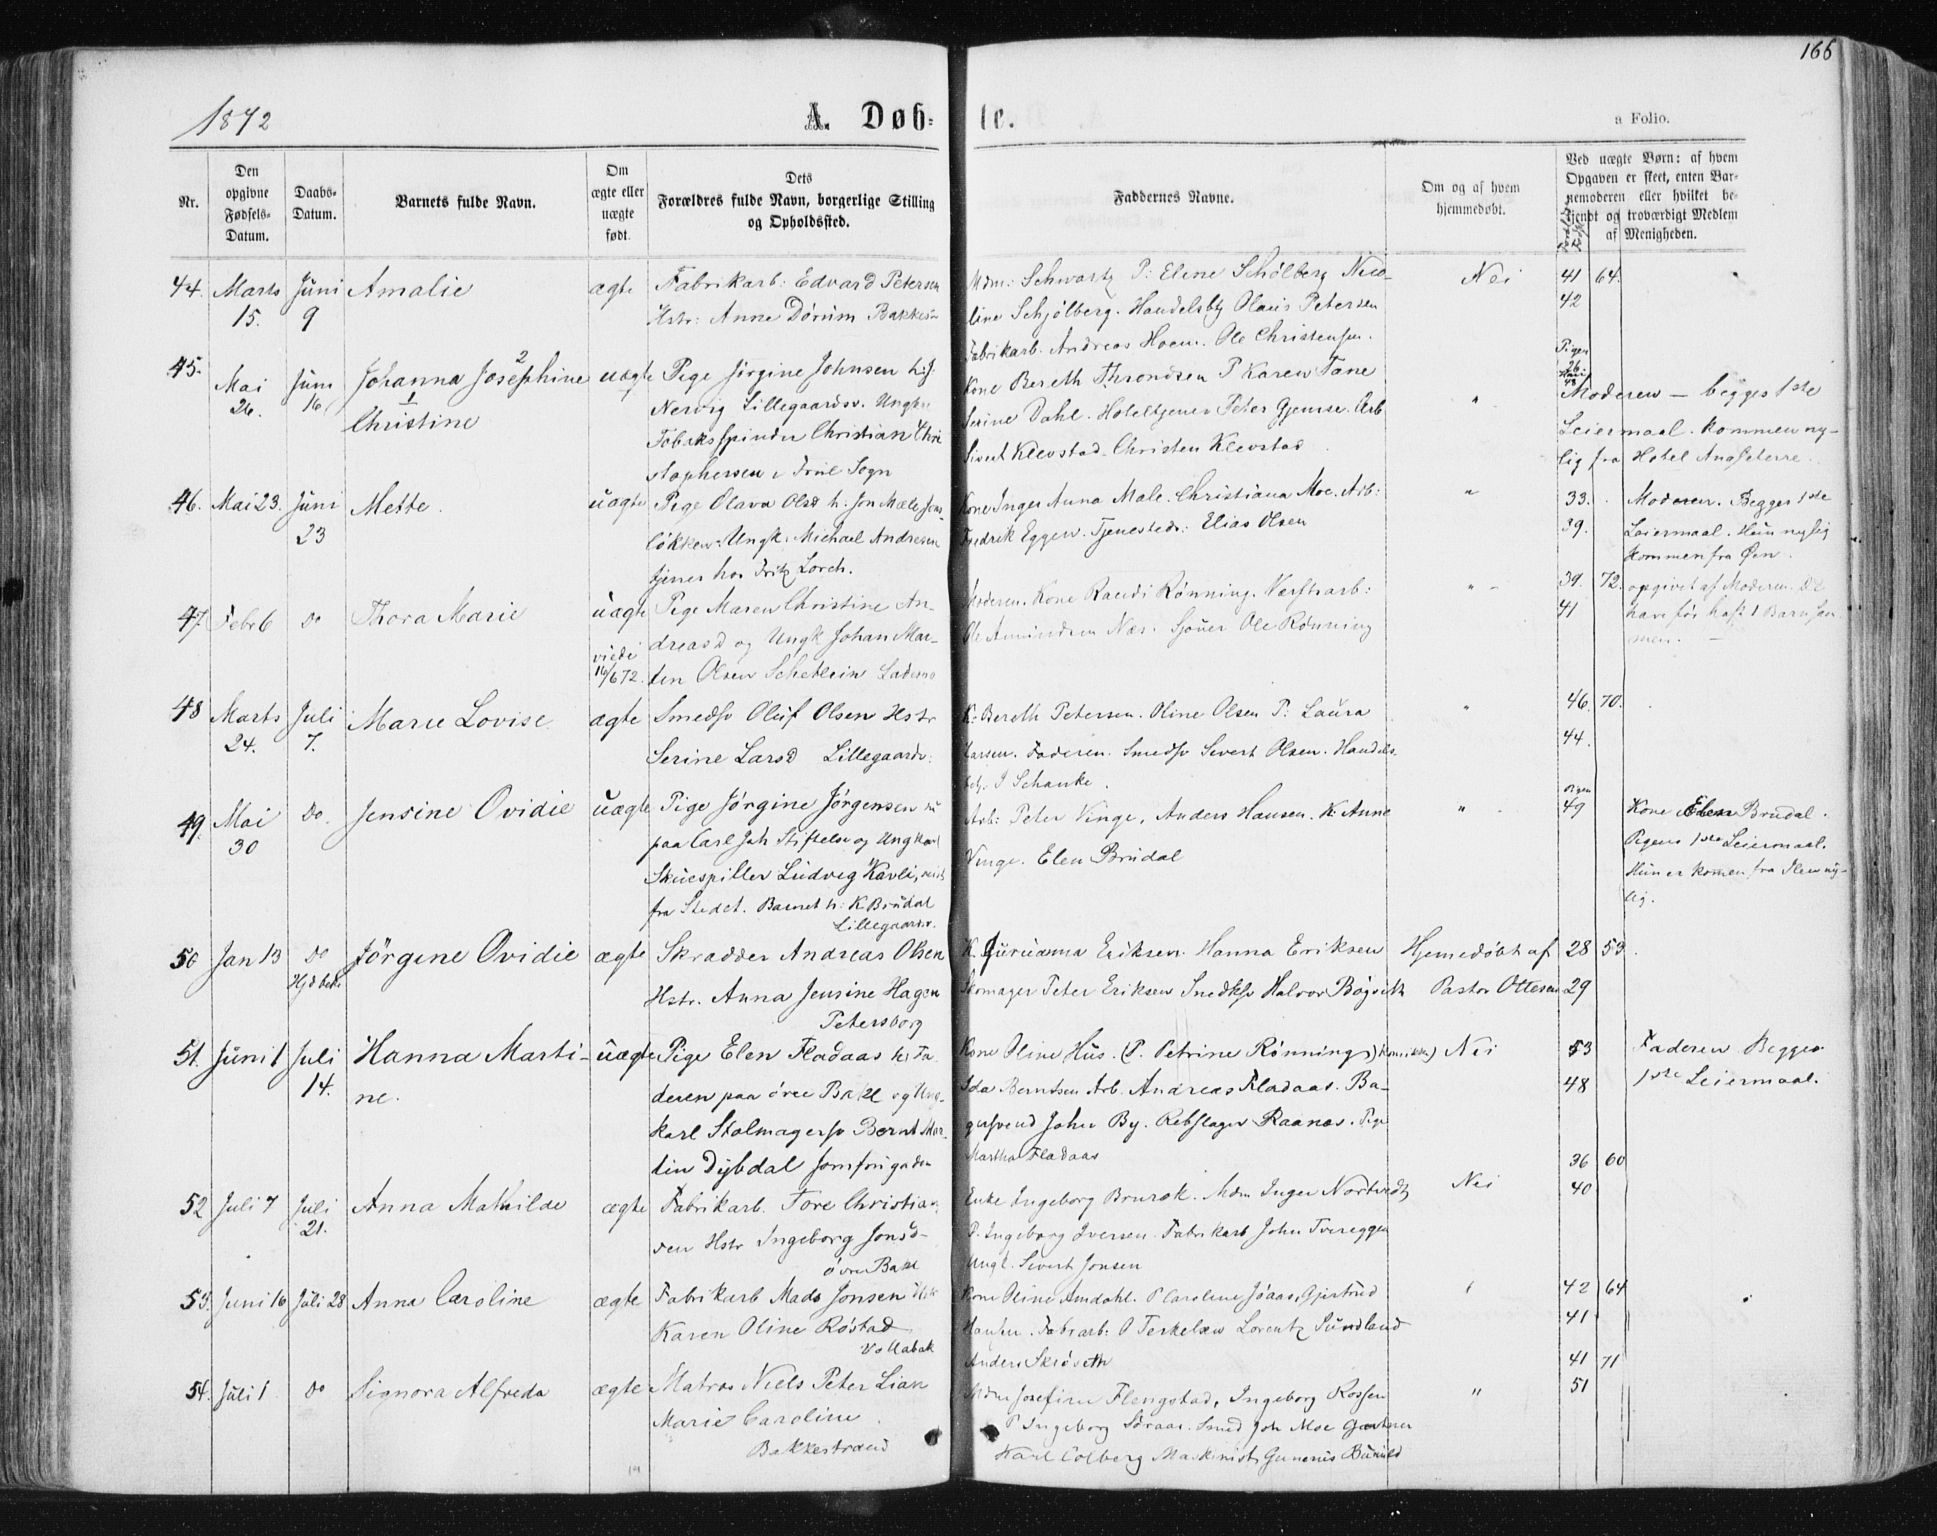 166
1872
A. Døb-
te.
a Folio.
Nr.
Den
opgivne
Fødsels-
Datum.
Daabs-
Datum.
Barnets fulde Navn.
Om
ægte eller
uægte
født.
Dets
Forældres fulde Navn, borgerlige Stilling
og Opholdssted.
Faddernes Navne.
Om og af hvem
hjemmedøbt.
Ved uægte Børn: af hvem
Opgaven er skeet, enten Bar-
nemoderen eller hvilket be-
kjendt og troværdigt Medlem
af Menigheden.
44. Marts 15. Juni 9 Amalie ægte
Fabrikarb: Edvard Petersen
Hstr: Anne Dörum
Mdm: Schwartz P: Elene Schölberg Nico-
line Schjølberg. Handelsbtj Olaus Petersen
Fabrikarb. Andreas Hoem. Ole Christensen.
Nei
41 64.
42
45. Mai 26. Juni 16 Johanna Josephine Christine uægte
Pige Jörgine Johnsen
Nervig Lillegaardsv. Ungk
Tobaksspinder Christian Chri
stophersen
Kone Bereth Throndsen P Karen Tane
Serine Dahl. Hoteltjener Peter Gjemse. Arb
Sivert Klevstad. Christen Klevstad
"
Pigen
26
48
Moderen – begges 1ste
Leiermaal. kommen ny-
lig fra Hotel Angleterre.
46. Mai 23. Juni 23 Mette. uægte
Pige Olava Olsd h: Jon Mæle
lökken. Ungk. Michael Andresen
tjener hos Fritz Lorch.
Kone Inger Anna Male. Christiana Moe. Arb:
Fredrik Eggen. Tjenestedr: Elias Olsen
"
33.
39.
Moderen. Begges 1ste
Leiermaal. Hun nylig
kommen fra Øen.
47 Febr 6 Do Thora Marie uægte
viede
16/6 72.
Pige Maren Christine An-
dreasd og Ungk Johan Mar-
tin Olsen
Moderen. Kone Randi Rønning. Værftsarb:
Ole Amundsen Næs. Sjouer Ole Rønning
"
39. 72.
41
opgivet af Moderen. De
have før haft 1 Barn sam
men. –
48 Marts 24. Juli 7. Marie Lovise ægte
Smedsv Oluf Olsen Hstr
Serine Larsd Lillegaardsv:
K: Bereth Petersen. Oline Olsen P: Laura
Larsen. Faderen. Smedsv Sivert Olsen. Handels
btj. J Schanke.
"
46. 70.
44.
49. Mai 30 Do. Jensine Ovidie uægte
Pige Jörgine Jörgensen
paa Carl Joh Stiftelse og Ungkarl
Skuespiller Ludvig Kavli, reist
fra Stedet. Barnet h: K Brudal
Lillegaardsv.
Arb: Peter Vinge, Anders Hansen. K: Anne
Vinge. Elen Brudal
"
Pigen
49
Kone Elen Brudal.
Pigens 1ste Leiermaal.
Hun er kommen fra
lig.
50 Jan 13 Do Jörgine Ovidie ægte
Skrædder Andreas Olsen
Hstr. Anna Jensine Hagen
Petersborg
K. Guruanna Eriksen. Hanna Eriksen
Skomager Peter Eriksen Snedksv Halvor
Hjemedøbt af
Pastor Ottesen
28 53.
29
51. Juni 1 Juli 14. Hanna Marti-
ne.
uægte
Pige Elen Fladaas h: Fa
deren paa øvre Bakl og Ung-
karl Stolmagersv Bernt Mar-
tin Dybdal
Kone Oline Hus. (P. Petrine Rønning)
Ida Berntsen Arb. Andreas Fladaas. Ba-
gersvend Johan By. Rebslager Raanes. Pige
Martha Fladaas
Nei
53
48
Faderen Begges
1ste Leiermaal.
52 Juli 7 Juli 21. Anna Mathilde ægte
Fabrikarb. Tore Christian
sen Hstr Ingeborg Jonsd
øvre Bakl
Enke Ingeborg Brurok. Mdm Inger
P. Ingeborg Iversen. Fabrikarb John Tvereggen
Ungk. Sivert Jonsen
Nei
36 60
40
53. Juni 16 Juli 28 Anna Caroline ægte
Fabrikarb Mads Jonsen Hstr
Karen Oline Røstad
Vollabak
Kone Oline Amdahl. P Caroline Jöaas, Gjertrud
Hansen. Fabrarb: O Terkelsen Lorentz Sundland
Anders
"
42 64
41
54. Juli 1 Do Signora Alfreda ægte
Matros Niels Peter Lian
Marie Caroline
Bakkestrand
Mdm Josefine Flengstad, Ingeborg Rossen
P Ingeborg Smed Joh Moe Gartner
Karl Colberg Maskinist
"
41 71
51